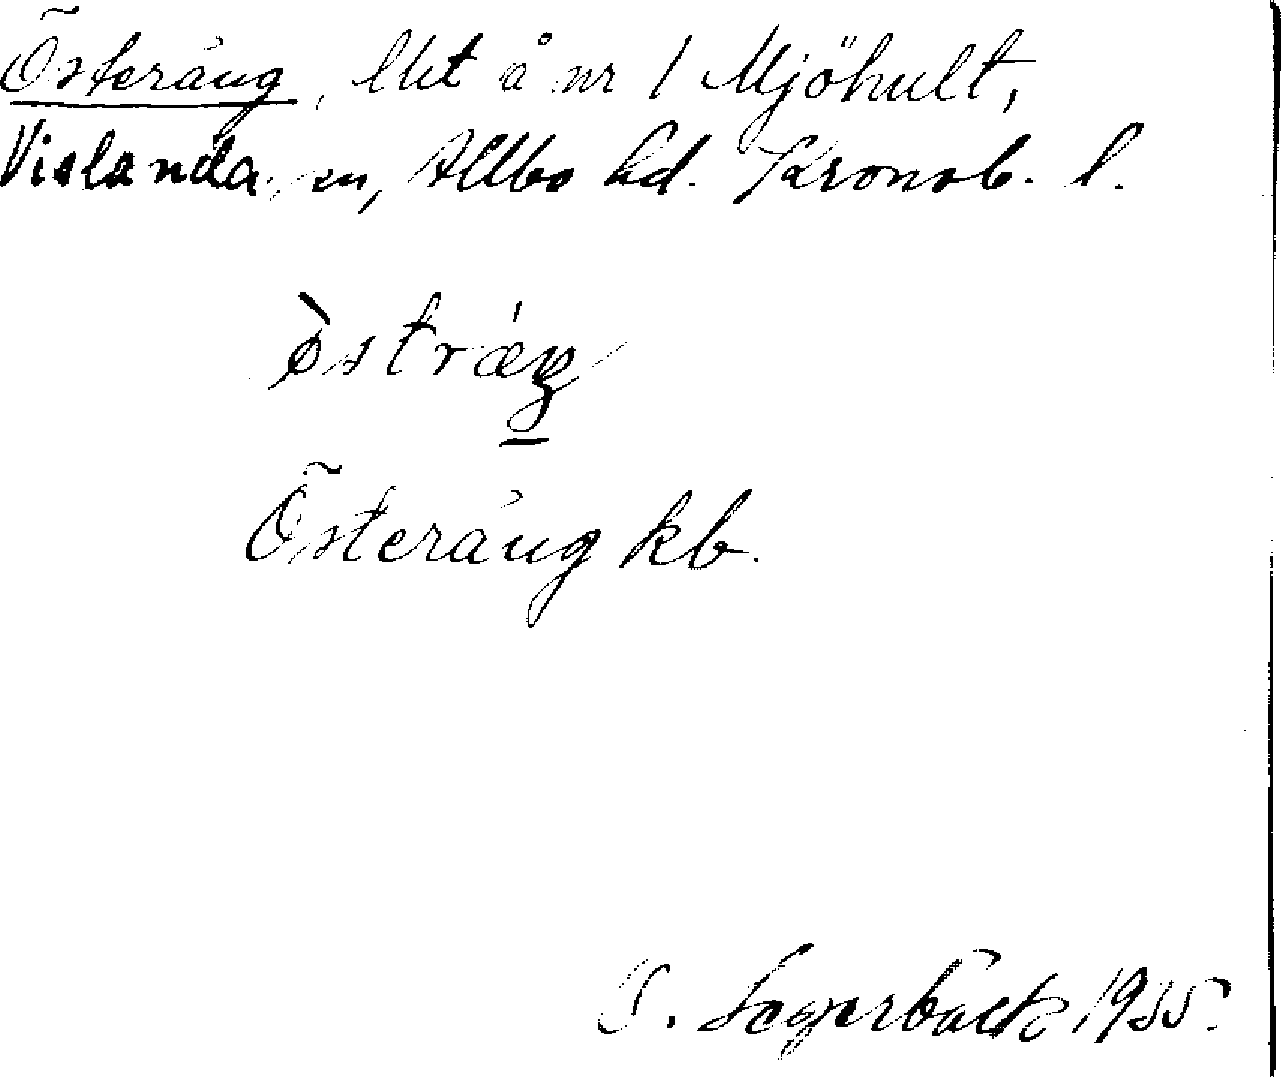 Österäng, lht å nr 1 Mjöhult,
Vislanda sn, Allbo hd. Kronob. l.
òstráŋ
Österäng kb.
Lagerbäck 1935.